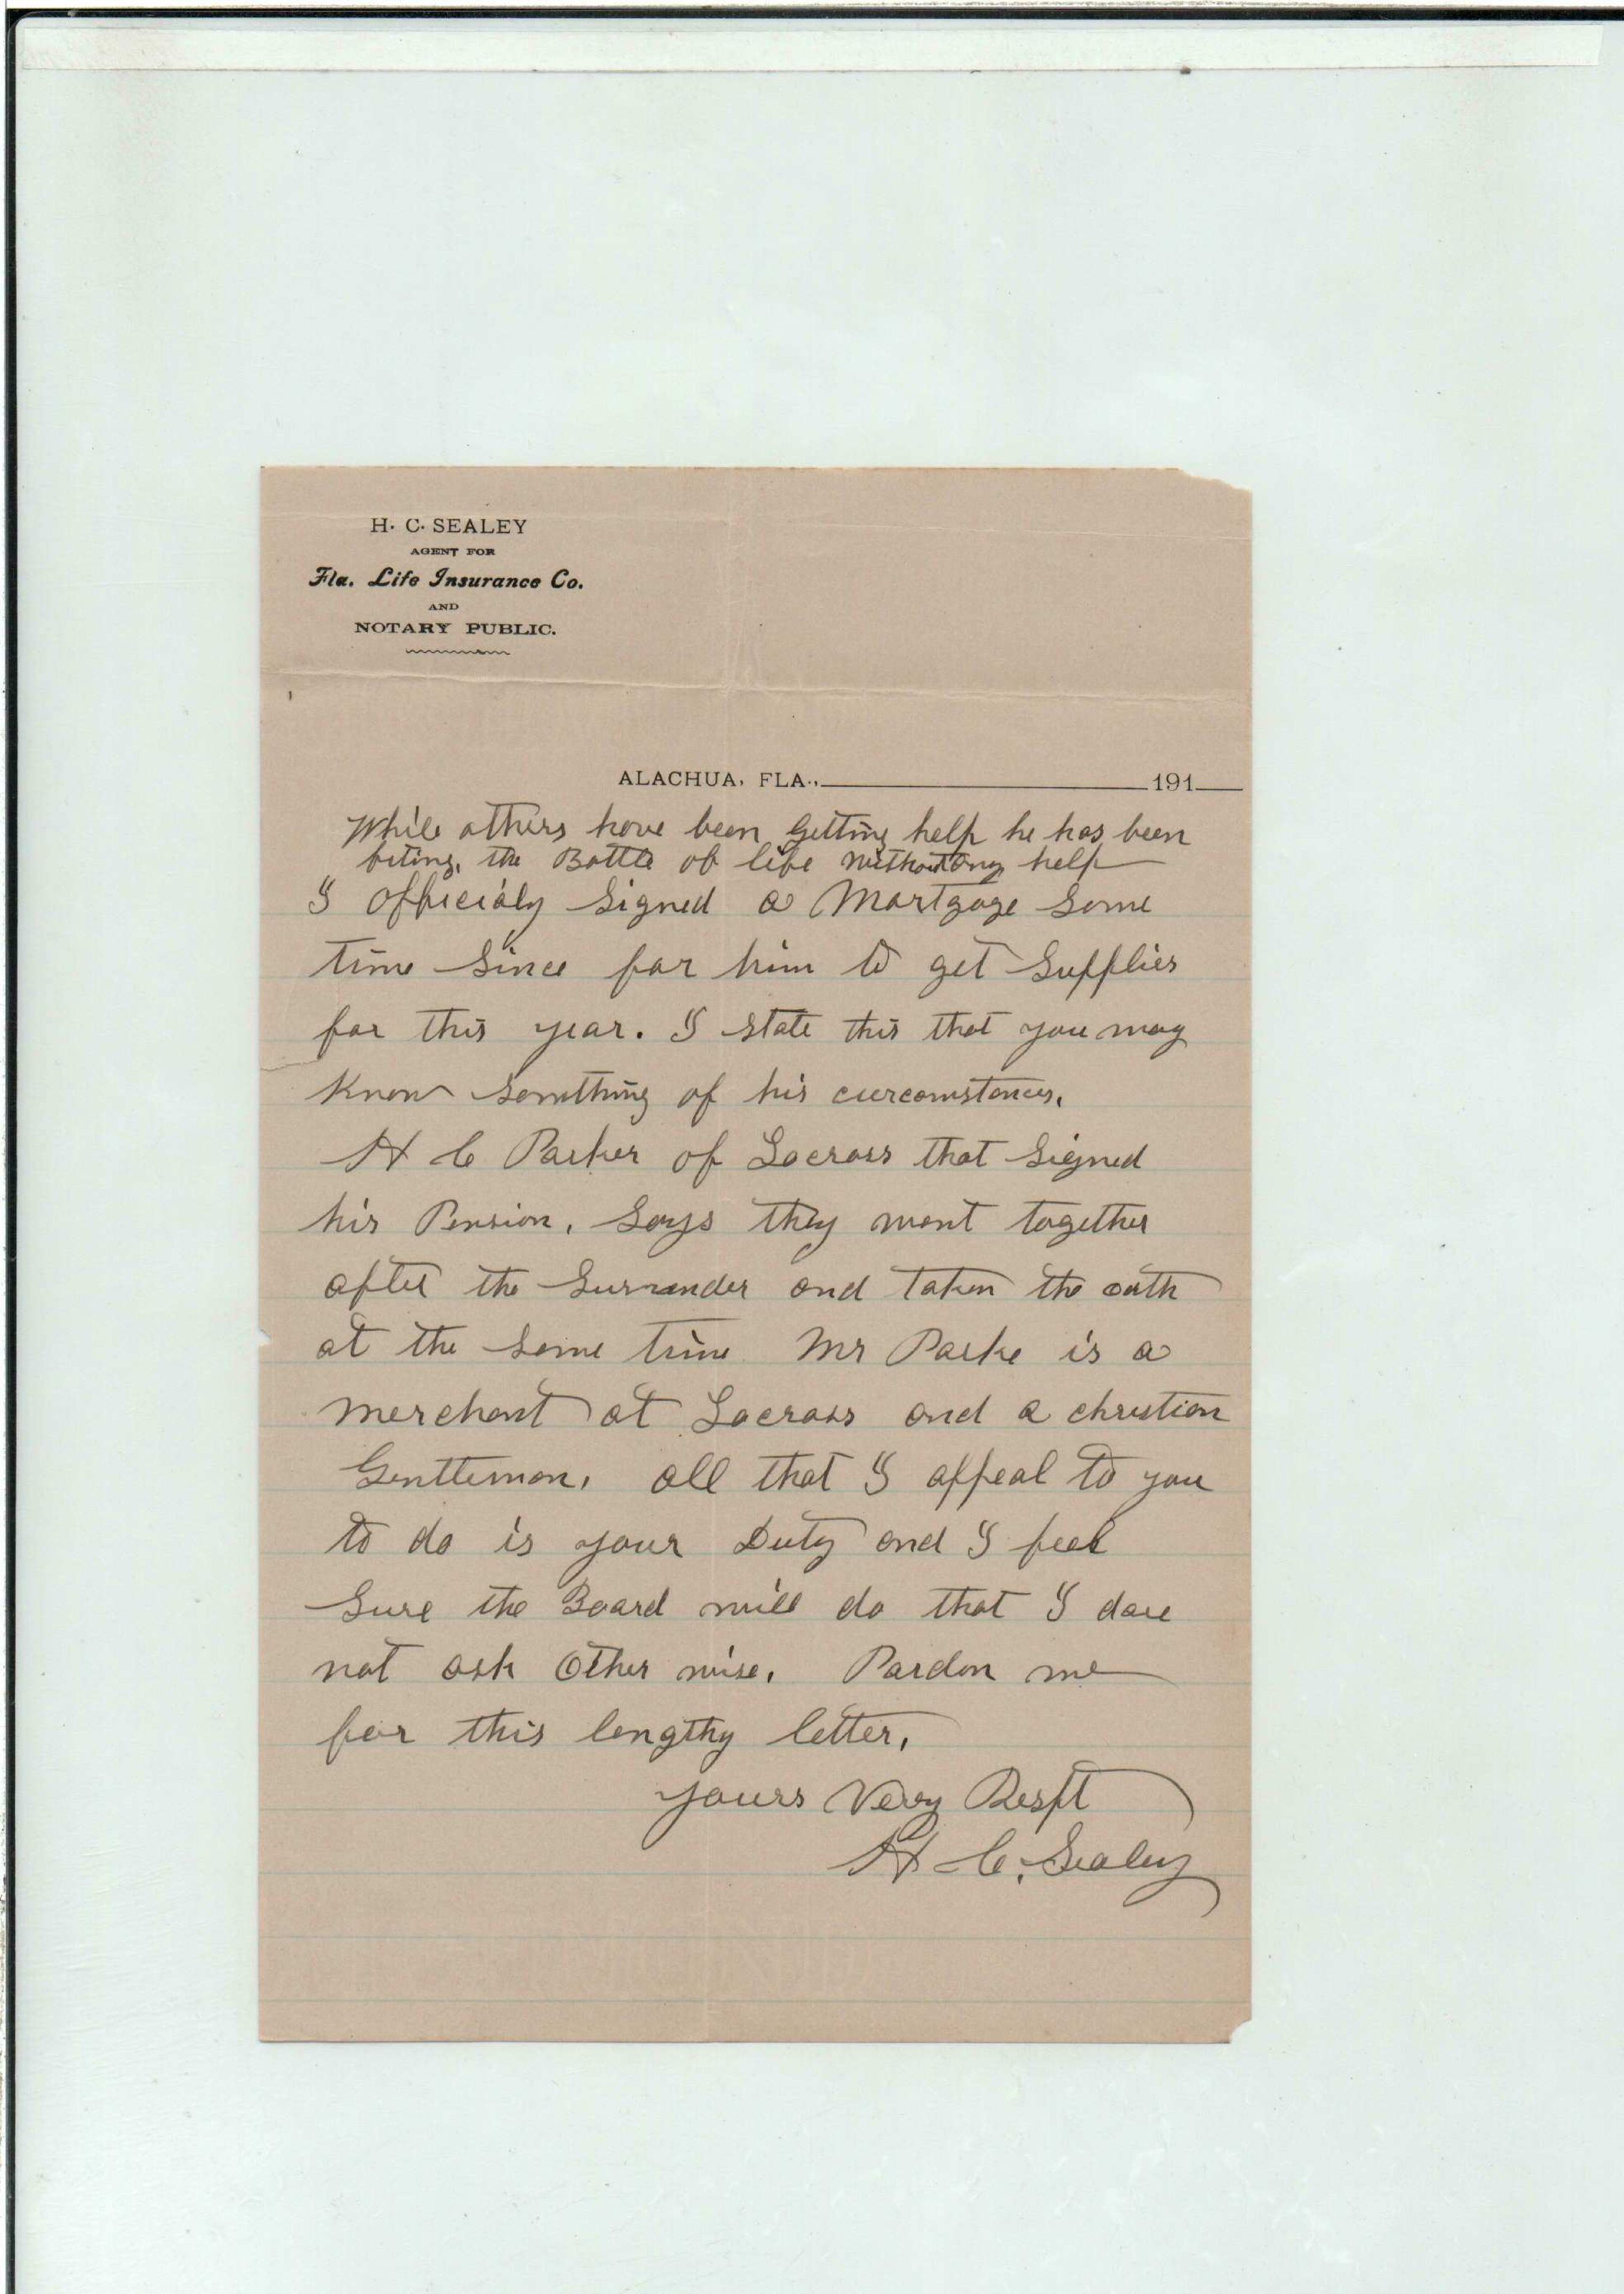 H. C. SEALEY
AGENT FOR
Fla. Life Insurance Co.
AND
NOTARY PUBLIC.
ALACHUA, FLA., 191
While others have been Getting help he has been
the Battle of life without any help
I officialy Signed a Mortgage Some
time Since for him to get Supplies
for this year. I state this that you may
Know Somthing of his curcomstances.
H C Parker of Lacross that Signed
his Pension, Says they went together
after the Surrander and taken the oath
at the Same time Mr Parke is a
merchant at Lacross and a christian
Gentleman, all that I appeal to you
to do is your Duty and I feel
Sure the Board will do that I dare
not ask Other wise. Pardon me
for this lengthy letter,
Yours Very Respt
H C. Sealey